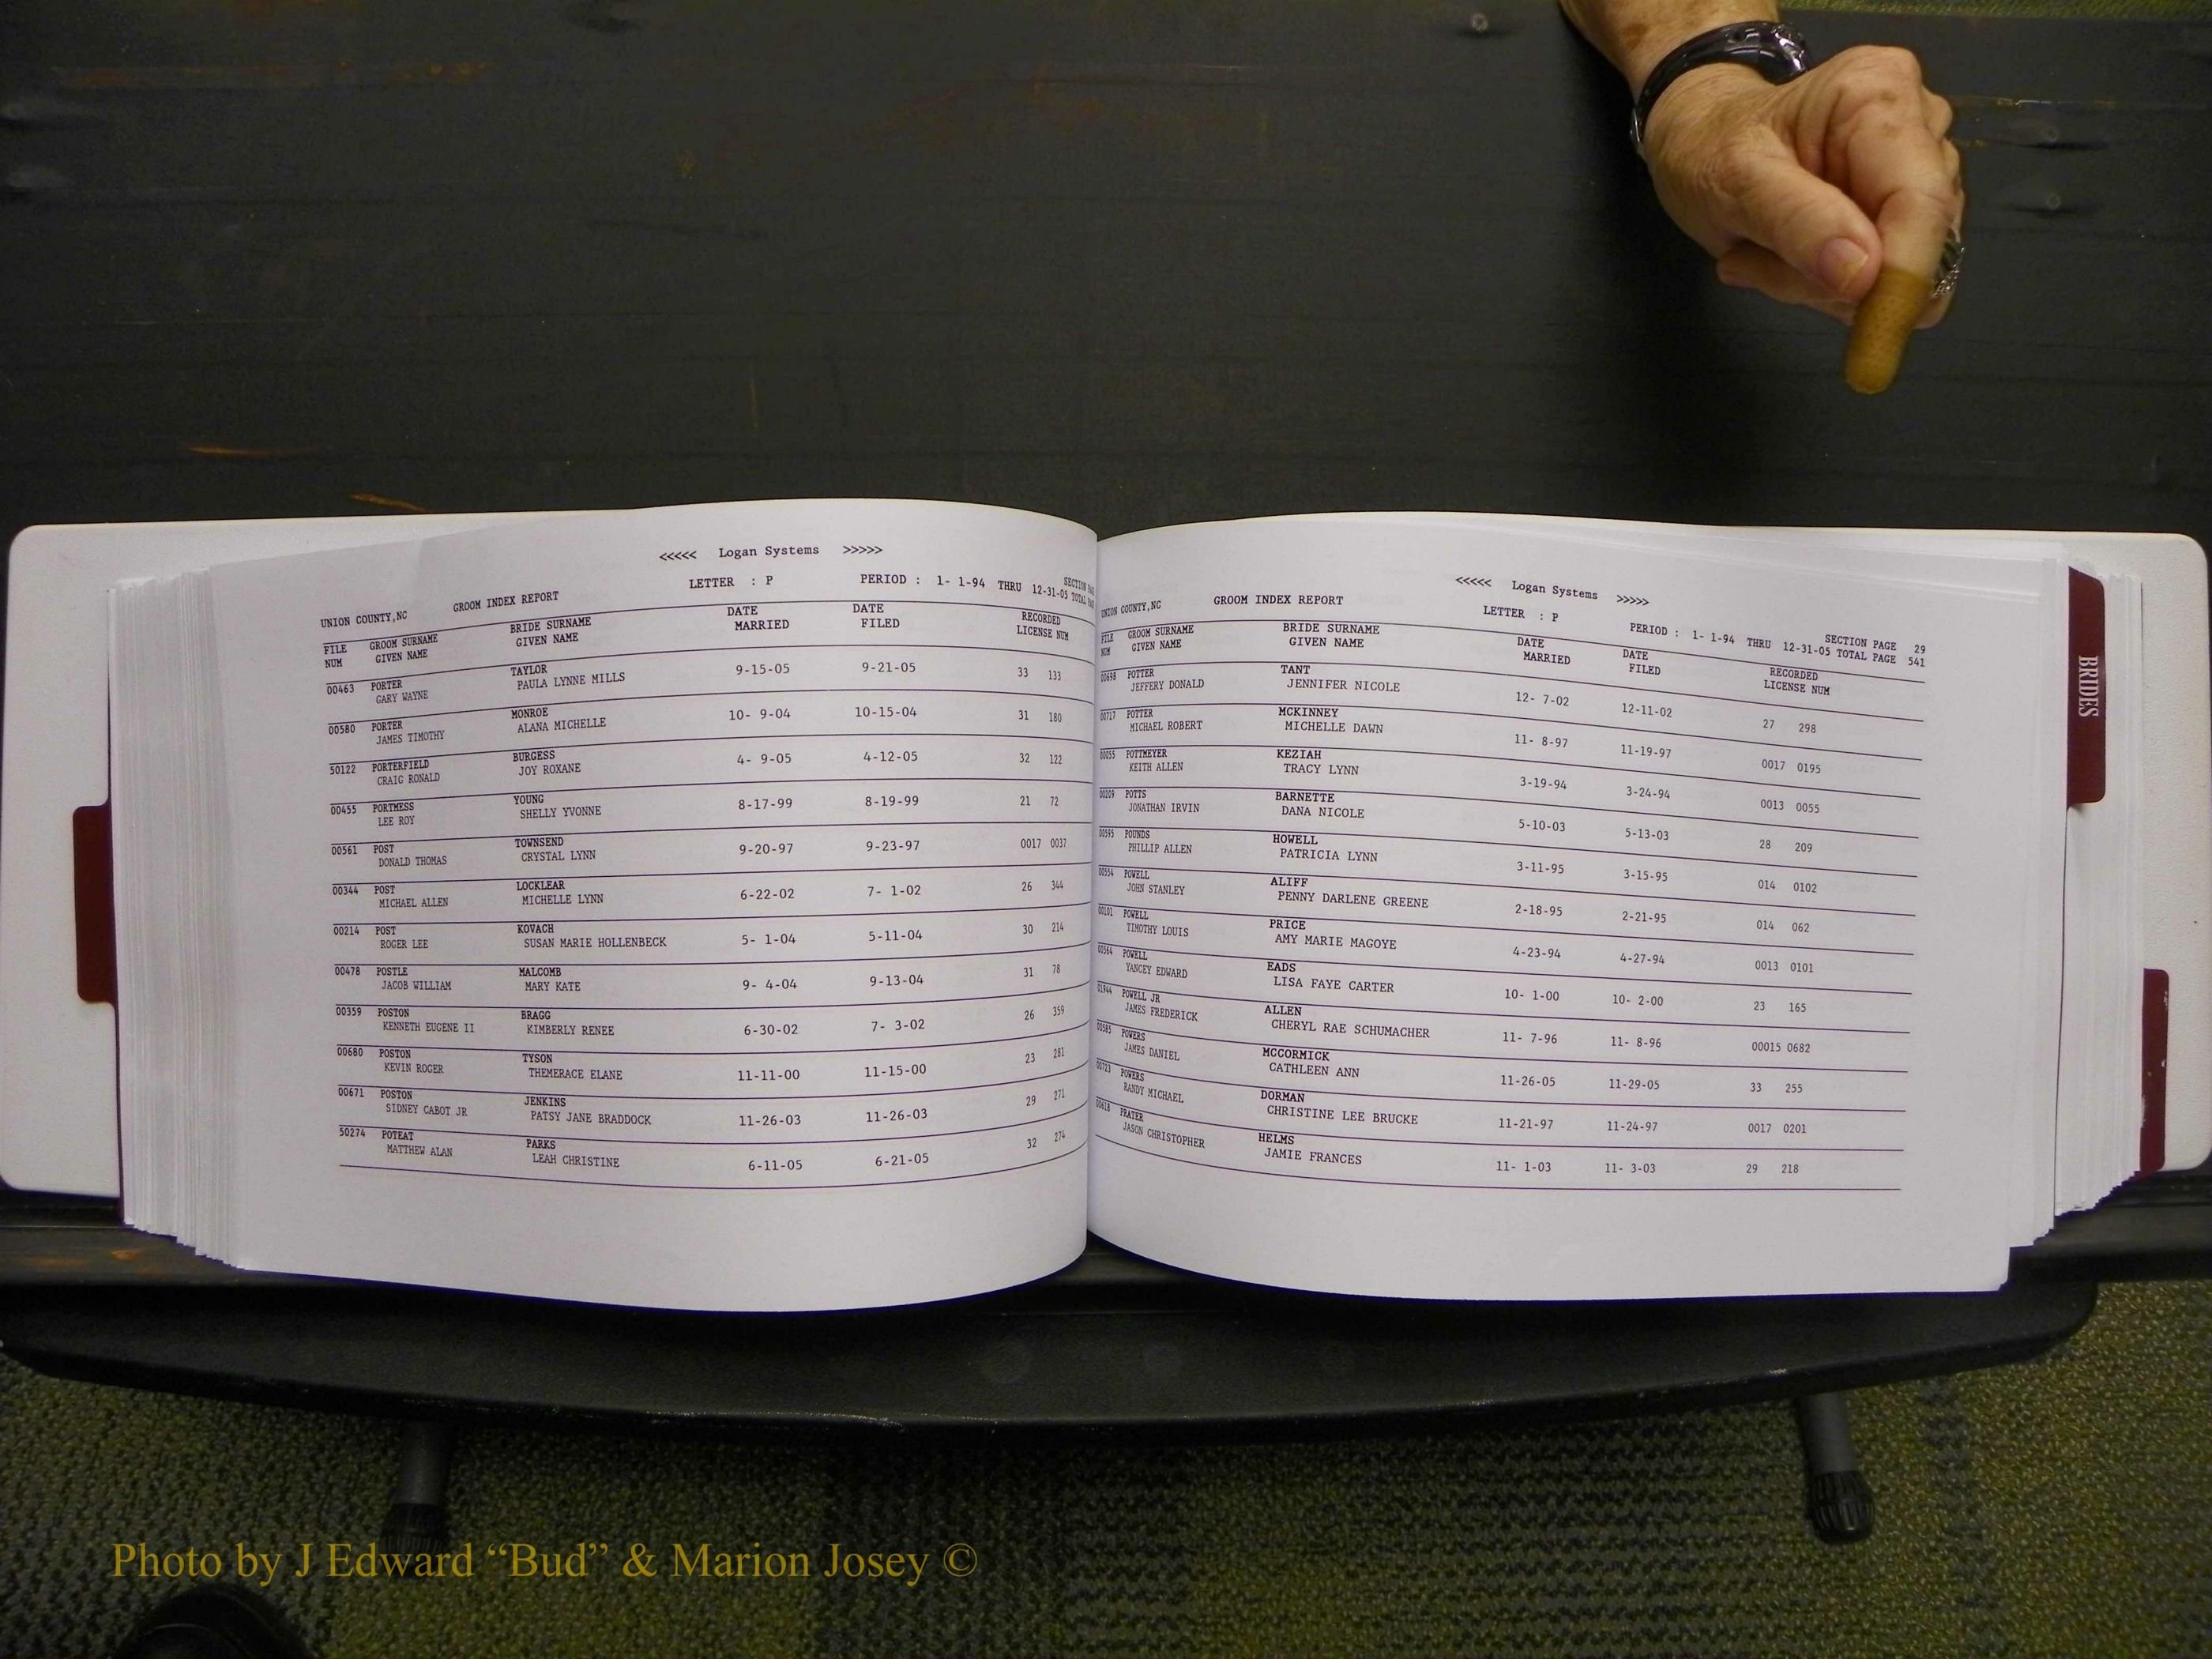 <<<<< Logan Systems >>>>>
UNION COUNTY,NC GROOM INDEX REPORT LETTER : P PERIOD : 1- 1-94 THRU 12-31-05 SECTION
TOTAL
FILE NUM GROOM SURNAME GIVEN NAME BRIDE SURNAME GIVEN NAME DATE MARRIED DATE FILED RECORDED LICENSE NUM
00463 PORTER TAYLOR 9-15-05 9-21-05 33 133
GARY WAYNE PAULA LYNNE MILLS
00580 PORTER MONROE 10- 9-04 10-15-04 31 180
JAMES TIMOTHY ALANA MICHELLE
50122 PORTERFIELD BURGESS 4- 9-05 4-12-05 32 122
CRAIG RONALD JOY ROXANE
00455 PORTMESS YOUNG 8-17-99 8-19-99 21 72
LEE ROY SHELLY YVONNE
00561 POST TOWNSEND 9-20-97 9-23-97 0017 0037
DONALD THOMAS CRYSTAL LYNN
00344 POST LOCKLEAR 6-22-02 7- 1-02 26 344
MICHAEL ALLEN MICHELLE LYNN
00214 POST KOVACH 5- 1-04 5-11-04 30 214
ROGER LEE SUSAN MARIE HOLLENBECK
00478 POSTLE MALCOMB 9- 4-04 9-13-04 31 78
JACOB WILLIAM MARY KATE
00359 POSTON BRAGG 6-30-02 7- 3-02 26 359
KENNETH EUGENE II KIMBERLY RENEE
00680 POSTON TYSON 11-11-00 11-15-00 23 281
KEVIN ROGER THEMERACE ELANE
00671 POSTON JENKINS 11-26-03 11-26-03 29 271
SIDNEY CABOT JR PATSY JANE BRADDOCK
50274 POTEAT PARKS 6-11-05 6-21-05 32 274
MATTHEW ALAN LEAH CHRISTINE
<<<<< Logan Systems >>>>>
UNION COUNTY,NC GROOM INDEX REPORT LETTER : P PERIOD : 1- 1-94 THRU 12-31-05 SECTION PAGE 29
TOTAL PAGE 541
FILE NUM GROOM SURNAME GIVEN NAME BRIDE SURNAME GIVEN NAME DATE MARRIED DATE FILED RECORDED LICENSE NUM
00698 POTTER TANT 12- 7-02 12-11-02 27 298
JEFFERY DONALD JENNIFER NICOLE
00717 POTTER MCKINNEY 11- 8-97 11-19-97 0017 0195
MICHAEL ROBERT MICHELLE DAWN
00055 POTTMEYER KEZIAH 3-19-94 3-24-94 0013 0055
KEITH ALLEN TRACY LYNN
00209 POTTS BARNETTE 5-10-03 5-13-03 28 209
JONATHAN IRVIN DANA NICOLE
00595 POUNDS HOWELL 3-11-95 3-15-95 014 0102
PHILLIP ALLEN PATRICIA LYNN
00554 POWELL ALIFF 2-18-95 2-21-95 014 062
JOHN STANLEY PENNY DARLENE GREENE
00101 POWELL PRICE 4-23-94 4-27-94 0013 0101
TIMOTHY LOUIS AMY MARIE MAGOYE
00564 POWELL EADS 10- 1-00 10- 2-00 23 165
YANCEY EDWARD LISA FAYE CARTER
01944 POWELL JR ALLEN 11- 7-96 11- 8-96 00015 0682
JAMES FREDERICK CHERYL RAE SCHUMACHER
00585 POWERS MCCORMICK 11-26-05 11-29-05 33 255
JAMES DANIEL CATHLEEN ANN
00723 POWERS DORMAN 11-21-97 11-24-97 0017 0201
RANDY MICHAEL CHRISTINE LEE BRUCKE
00618 PRATER HELMS 11- 1-03 11- 3-03 29 218
JASON CHRISTOPHER JAMIE FRANCES
BRIDES
Photo by J Edward “Bud” & Marion Josey ©